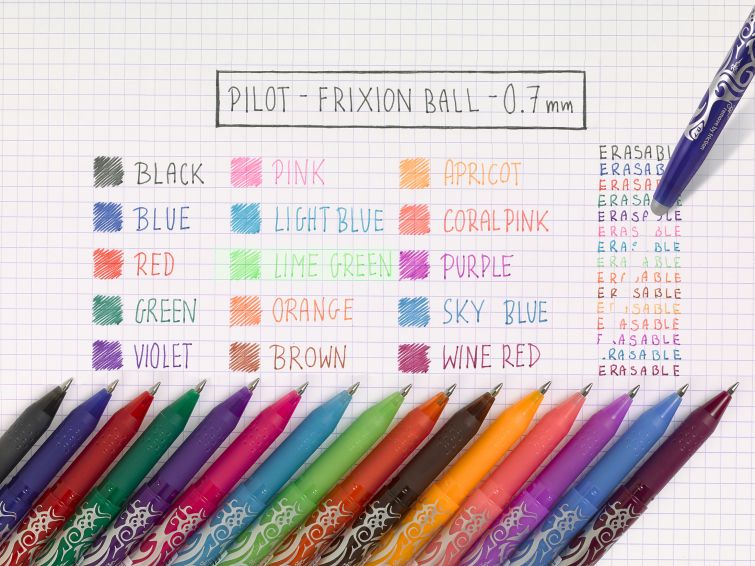 PILOT - FRIXION BALL - 0.7 mm
BLACK
BLUE
RED
GREEN
VIOLET
PINK
LIGHT BLUE
LIME GREEN
ORANGE
BROWN
APRICOT
CORAL PINK
PURPLE
SKY BLUE
WINE RED
ERASABL
ERASABL
ERASAB
ERASA
ERASA LE
ERAS BLE
ERAS BLE
ERA ABLE
ERA ABLE
ER SABLE
E SABLE
E ASABLE
ASABLE
RASABLE
ERASABLE
remove by friction